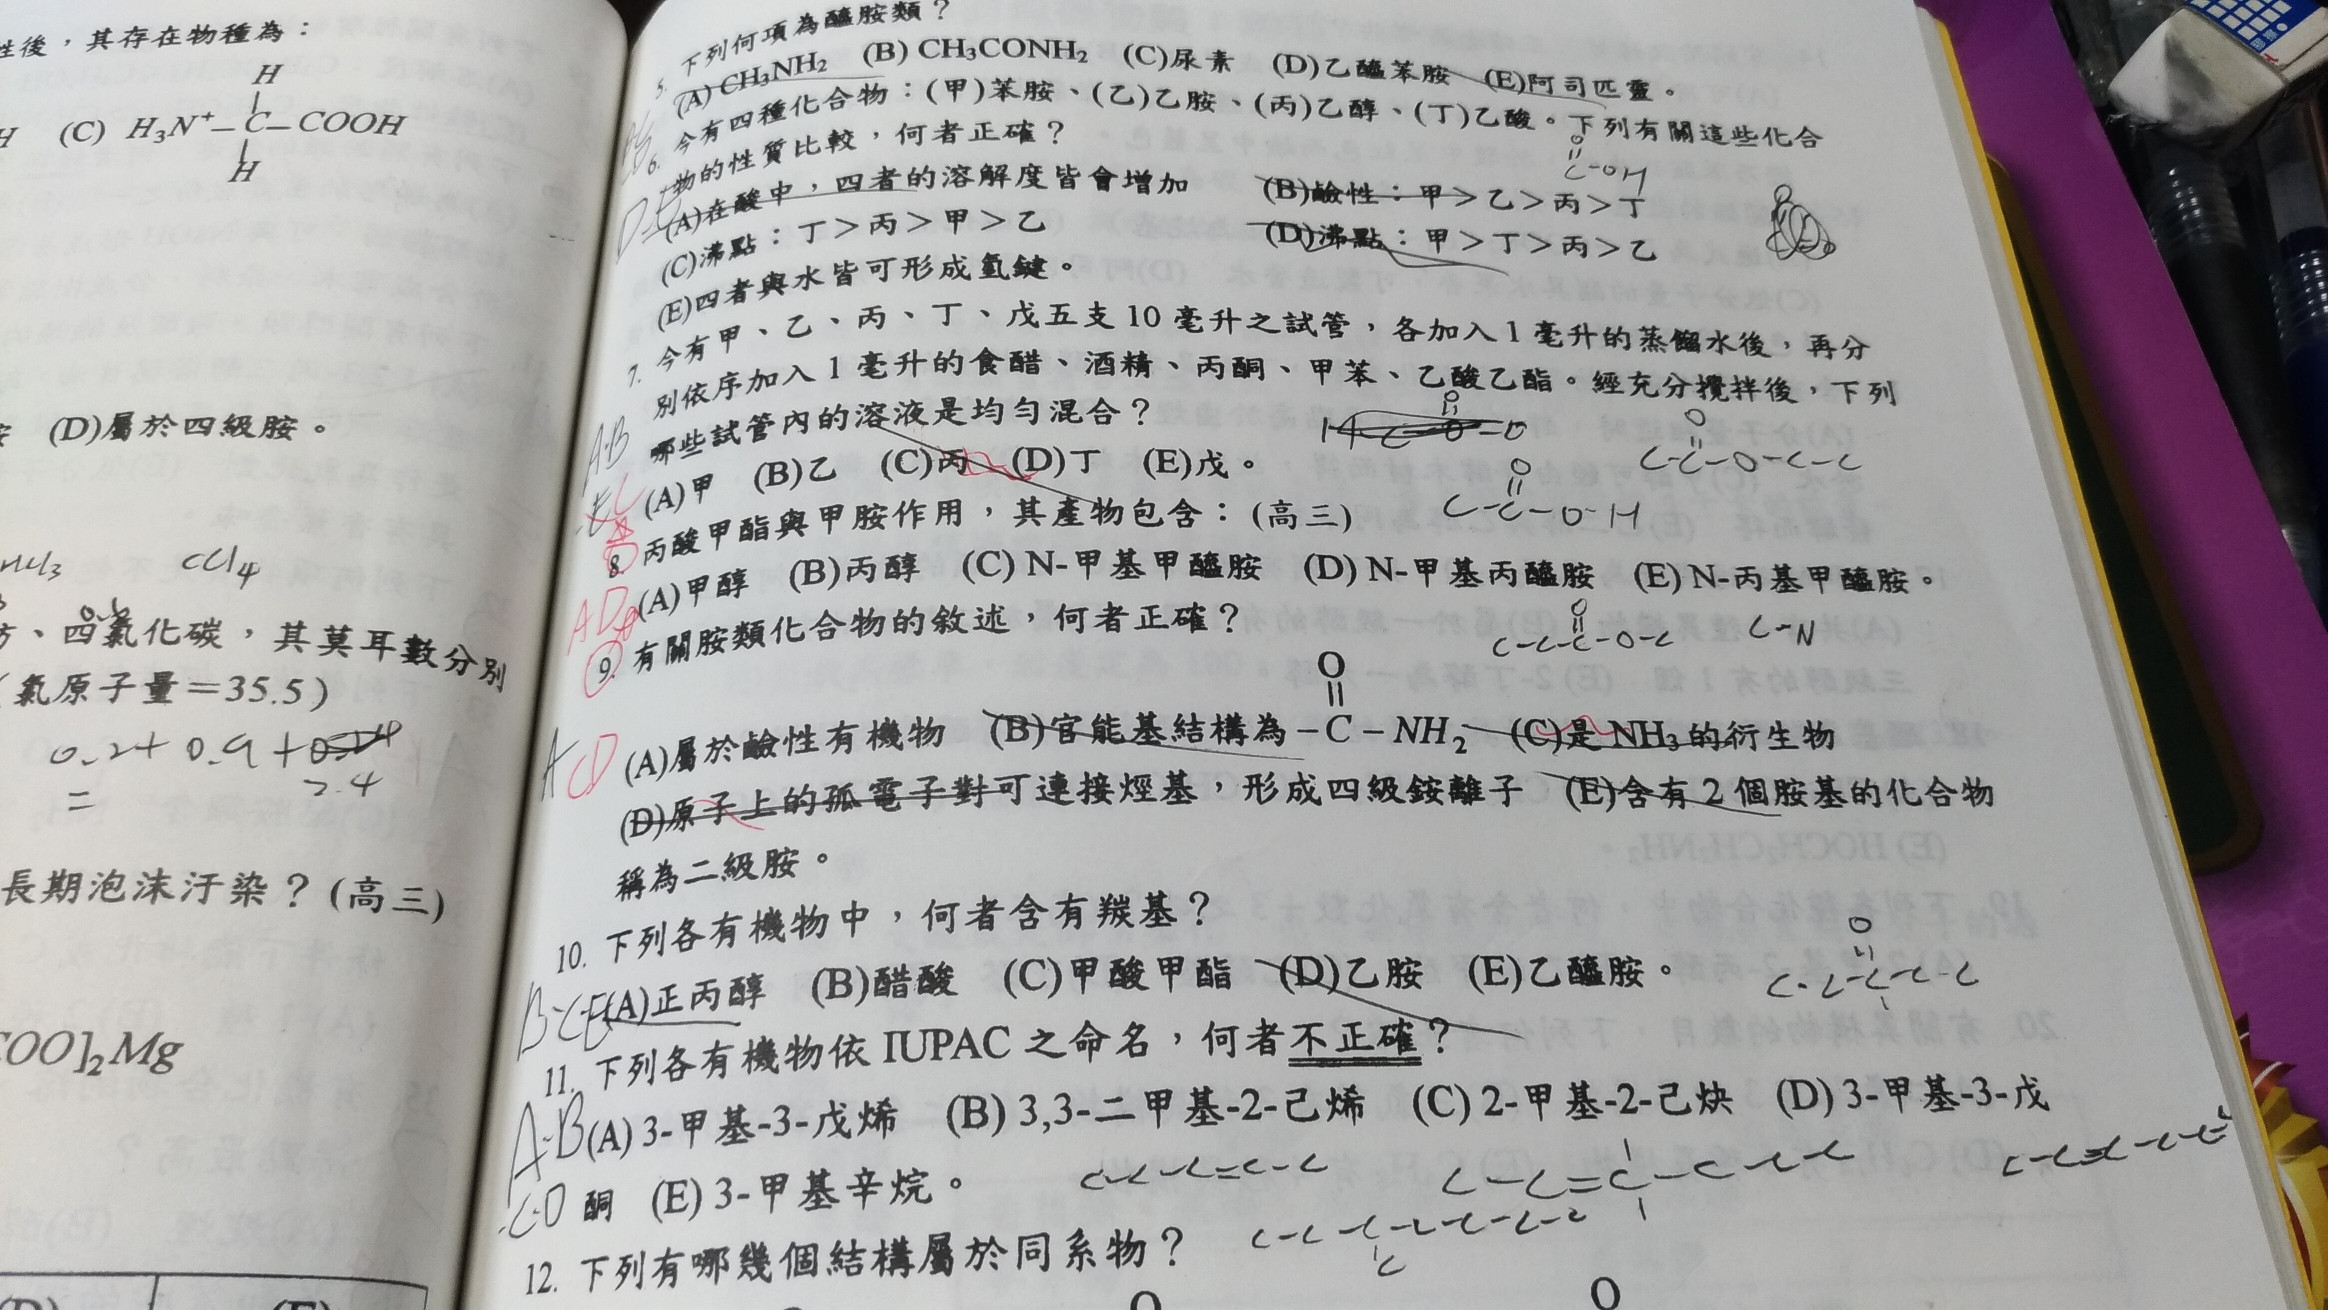 性後，其存在物種為：
H
(C) H₃N⁺－C－COOH
H
(D)屬於四級胺。
CCl4
、四氯化碳，其莫耳數分別
(氯原子量＝35.5)
0.2+ 0.9 +
2.4
=
長期泡沫汙染？(高三)
COO]₂Mg
5. 下列何項為醯胺類？
(A) CH₃NH₂ (B) CH₃CONH₂ (C)尿素 (D)乙醯苯胺 (E)阿司匹靈。
6. 今有四種化合物：(甲)苯胺、(乙)乙胺、(丙)乙醇、(丁)乙酸。下列有關這些化合
物的性質比較，何者正確？
O
C-OH
(A)在酸中，四者的溶解度皆會增加 (B)鹼性：甲＞乙＞丙＞丁
D.E
(C)沸點：丁＞丙＞甲＞乙 (D)沸點：甲＞丁＞丙＞乙
(E)四者與水皆可形成氫鍵。
7. 今有甲、乙、丙、丁、戊五支 10 毫升之試管，各加入 1 毫升的蒸餾水後，再分
別依序加入 1 毫升的食醋、酒精、丙酮、甲苯、乙酸乙酯。經充分攪拌後，下列
哪些試管內的溶液是均勻混合？
A.B
O
C-C-O-C-C
(A)甲 (B)乙 (C)丙 (D)丁 (E)戊。
C
O
C-C-O-H
8. 丙酸甲酯與甲胺作用，其產物包含：(高三)
(A)甲醇 (B)丙醇 (C) N-甲基甲醯胺 (D) N-甲基丙醯胺 (E) N-丙基甲醯胺。
AD
O
C-C-C-O-C C-N
9. 有關胺類化合物的敘述，何者正確？
O
(A)屬於鹼性有機物 (B)官能基結構為－C－NH₂ (C)是 NH₃ 的衍生物
A CD
(D)原子上的孤電子對可連接烴基，形成四級銨離子 (E)含有 2 個胺基的化合物
稱為二級胺。
10. 下列各有機物中，何者含有羰基？
B.C.E
(A)正丙醇 (B)醋酸 (C)甲酸甲酯 (D)乙胺 (E)乙醯胺。
O
C-C-C-C-C
11. 下列各有機物依 IUPAC 之命名，何者不正確？
A.B
(A) 3-甲基-3-戊烯 (B) 3,3-二甲基-2-己烯 (C) 2-甲基-2-己炔 (D) 3-甲基-3-戊
.C.D
酮 (E) 3-甲基辛烷。
C-C-C=C-C
C-C=C-C-C-C
C-C-C-C-C-C-C
C
12. 下列有哪幾個結構屬於同系物？
O
O